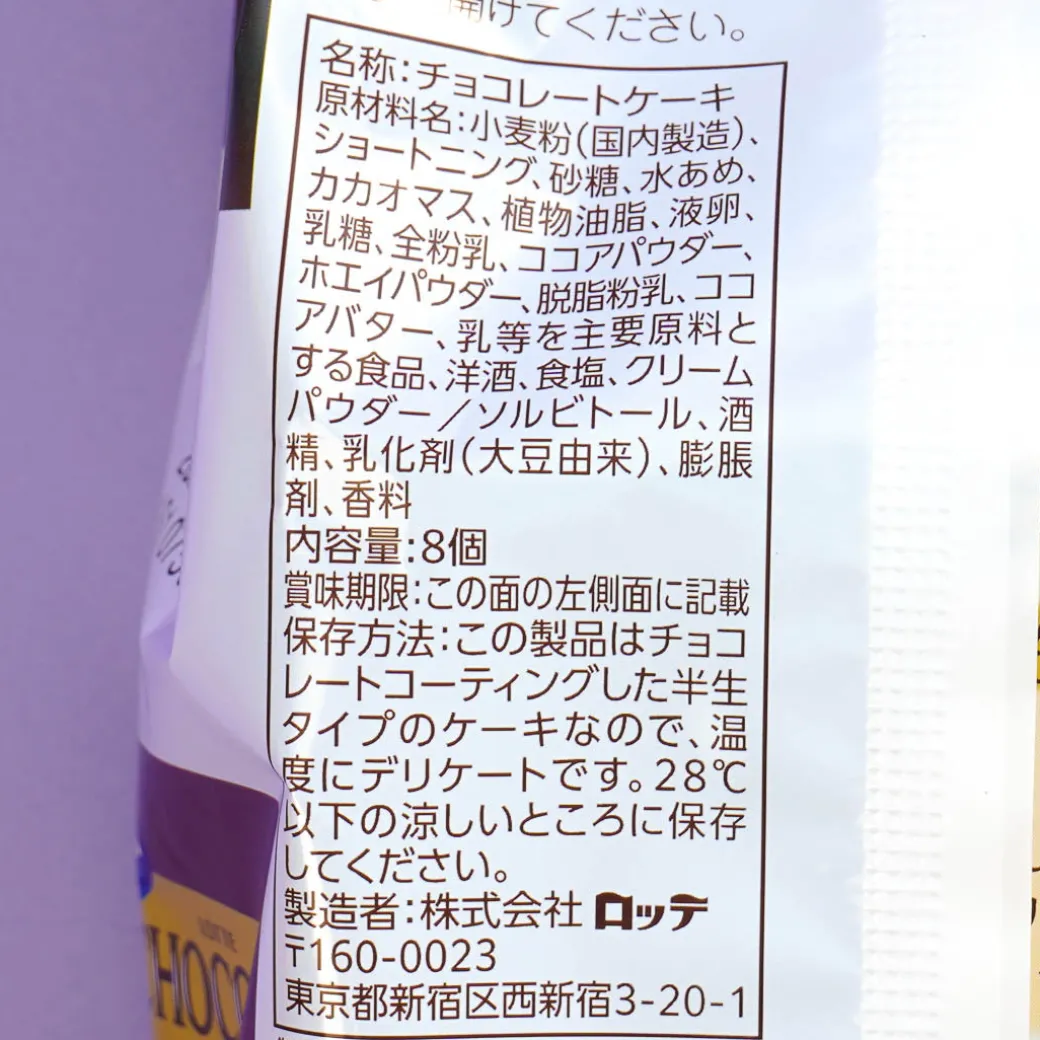 開けてください。
名称：チョコレートケーキ
原材料名：小麦粉（国内製造）、
ショートニング、砂糖、水あめ、
カカオマス、植物油脂、液卵、
乳糖、全粉乳、ココアパウダー、
ホエイパウダー、脱脂粉乳、ココ
アバター、乳等を主要原料と
する食品、洋酒、食塩、クリーム
パウダー／ソルビトール、酒
精、乳化剤（大豆由来）、膨脹
剤、香料
内容量：8個
賞味期限：この面の左側面に記載
保存方法：この製品はチョコ
レートコーティングした半生
タイプのケーキなので、温
度にデリケートです。28℃
以下の涼しいところに保存
してください。
製造者：株式会社 ロッテ
〒160-0023
東京都新宿区西新宿3-20-1
LOTTE
CHOCO